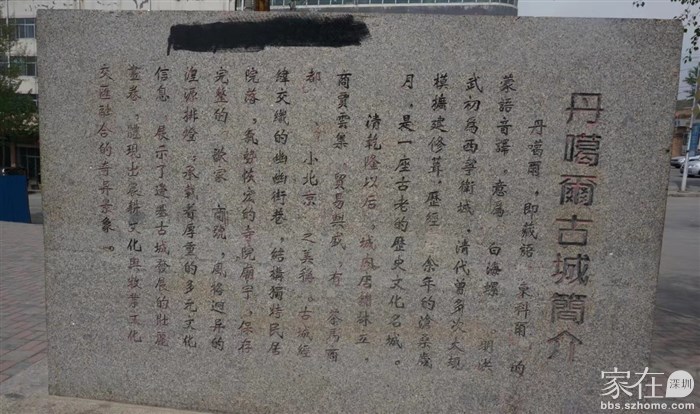 丹噶爾古城簡介
丹噶爾，即藏語 東科爾 的
蒙語音譯，意爲 白海螺 明洪
武初爲西寧衛城，清代曾多次大規
模擴建修葺，歷經 余年的滄桑歲
月，是一座古老的歷史文化名城。
清乾隆以后，城内店鋪林立，
商賈雲集 貿易興盛 有 茶馬商
都 、 小北京 之美稱。古城經
緯交織的幽幽街巷，結構獨特民居
院落，氣勢恢宏的寺院廟宇，保存
完整的 歇家 商 ，風格迥異的
湟源排燈，承載着厚重的多元文化
信息，展示了邊塞古城發展的壯麗
畫卷，體現出農耕文化與牧業文化
交匯融合的奇异景象。
家在深圳
bbs.szhome.com